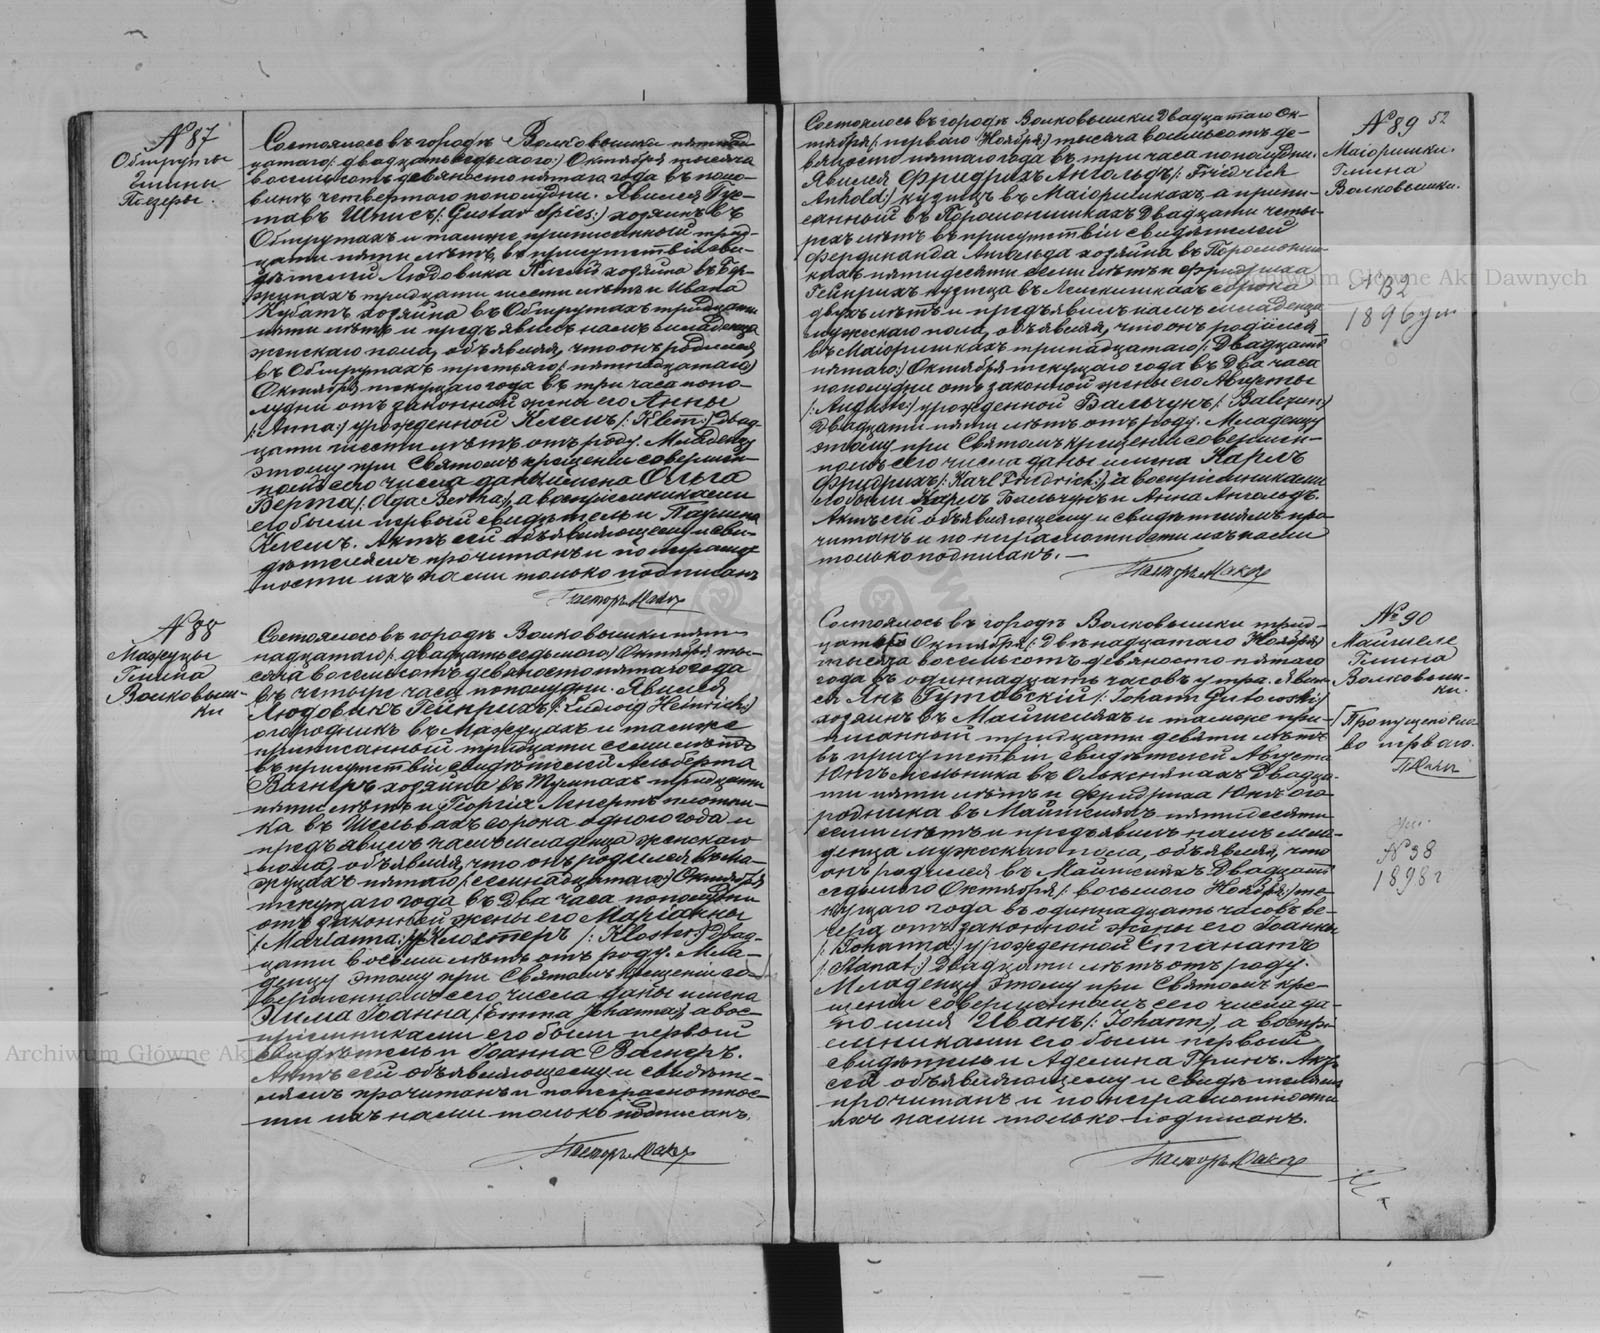 № 87
Обшруты
Гмины
Пѣезеры.
Состоялось въ городѣ Волковышки пятнад-
цатаго /: двадцать седьмаго:/ Октября тысяча
восемьсотъ девяносто пятаго года въ поло-
винѣ четвертаго пополудни. Явился Гус-
тавъ Шписъ /: Gustav Spies:/ хозяинъ въ
Обшрутахъ и тамже приписанный трид-
цати пяти лѣтъ, въ присутствіи сви-
дѣтелей Людовика Клемъ хозяина въ
тридцати шести лѣтъ и Ивана
Кубатъ хозяина въ Обшрутахъ тридцати
пяти лѣтъ и предъявилъ намъ младенца
женскаго пола, объявляя, что онъ родился
въ Обшрутахъ третьяго /: пятнадцатаго:/
Октября текущаго года въ три часа попо-
лудни отъ законной жены его Анны
/: Anna:/ урожденной Клемъ /: Klem:/ двад-
цати шести лѣтъ отъ роду. Младенцу
этому при Святомъ крещеніи совершен-
номъ сего числа даны имена Ольга
Берта /: Olga Bertha:/, а воспріемниками
его были первый свидѣтель и Паулина
Клемъ. Актъ сей объявляющему и сви-
дѣтелямъ прочитанъ и по неграмот-
ности ихъ нами только подписанъ
Пасторъ
№ 88
Мажуцы
Гмина
Волковыш-
ки
Состоялось въ городѣ Волковышки пят-
надцатаго /: двадцать седьмого:/ Октября ты-
сяча восемьсотъ девяносто пятаго года
въ четыре часа пополудни. Явился
Людовикъ Гейнрихъ /: Ludwig Heinrich:/
огородникъ въ Мажуцахъ и тамже
приписанный тридцати семи лѣтъ
въ присутствіи свидѣтелей Альберта
Вагнеръ хозяина въ тридцати
пяти лѣтъ и Георгія Ленертъ плотни-
ка въ Шельвахъ сорока одного года и
предъявилъ намъ младенца женскаго
пола, объявляя, что онъ родился въ Ма-
жуцахъ пятаго /: семнадцатаго:/ Октября
текущаго года въ два часа пополудни
отъ законной жены его Маріанны
/: Marianna:/ Клостеръ /: Kloster:/ двад-
цати восьми лѣтъ отъ роду. Мла-
денцу этому при Святомъ крещеніи со-
вершенномъ сего числа даны имена
Эмма Іоанна /: Emma Johanna:/, а вос-
пріемниками его были первый
свидѣтель и Іоанна Вагнеръ.
Актъ сей объявляющему и свидѣте-
лямъ прочитанъ и по неграмотнос-
ти ихъ нами только подписанъ.
Пасторъ
№ 89 52
Маіоришки.
Гмина
Волковышки.
№ 32
1896 ум
Состоялось въ городѣ Волковышки Двадцатаго Ок-
тября /: перваго Ноября:/ тысяча восемьсотъ де-
вяносто пятаго года въ три часа пополудни.
Явился Фридрихъ Ангольдъ /: Friedrich
Anhold:/ кузнецъ въ Маіоришкахъ, а припи-
санный въ Поромонишкахъ двадцати четы-
рехъ лѣтъ въ присутствіи свидѣтелей
Фердинанда Ангольда хозяина въ Поромониш-
кахъ пятидесяти семи лѣтъ и Фридриха
Гейнрихъ кузнеца въ сорока
двухъ лѣтъ и предъявилъ намъ младенца
мужескаго пола, объявляя, что онъ родился
въ Маіоришкахъ тринадцатаго /: Двадцать
пятаго:/ Октября текущаго года въ два часа
пополудни отъ законной жены его Августы
/: August:/ урожденной Бальчунъ /: Balczun:/
двадцати пяти лѣтъ отъ роду. Младенцу
этому при Святомъ крещеніи совершен-
номъ сего числа даны имена Карлъ
Фридрихъ /: Karl Fridrich:/, а воспріемниками
его были Карлъ Бальчунъ и Анна Ангольдъ.
Актъ сей объявляющему и свидѣтелямъ про-
читанъ и по неграмотности ихъ нами
только подписанъ. —
Пасторъ
№ 90
Майшеле
Гмина
Волковыш-
ки.
/Пропущено сло-
во перваго.
№ 38
1898 г
Состоялось въ городѣ Волковышки трид-
цать Октября /: Двѣнадцатаго Ноября:/
тысяча восемьсотъ девяносто пятаго
года въ одиннадцать часовъ утра. Явил-
ся Янъ Гутовскій /: Johann Gutowski:/
хозяинъ въ Майшеляхъ и тамже при-
писанный тридцати девяти лѣтъ
въ присутствіи свидѣтелей Августа
Юнъ мельника въ двадца-
ти пяти лѣтъ и Фридриха Юнъ ого-
родника въ Майшеляхъ пятидесяти
семи лѣтъ и предъявилъ намъ мла-
денца мужескаго пола, объявляя, что
онъ родился въ Майшеляхъ Двадцать
седьмого Октября /: восьмого Ноября:/ те-
кущаго года въ одиннадцать часовъ ве-
чера отъ законной жены его Іоанны
/: Johanna:/ урожденной Станатъ
/: Stanat:/ Двадцати лѣтъ отъ роду.
Младенцу этому при Святомъ кре-
щеніи совершенномъ сего числа да-
но имя Иванъ /: Johann:/, а воспрі-
емниками его были первый
свидѣтель и Аделина Гринъ. Актъ
сей объявляющему и свидѣтелямъ
прочитанъ и по неграмотности
ихъ нами только подписанъ.
Пасторъ
Archiwum Główne Akt Dawnych
Archiwum Główne Ak